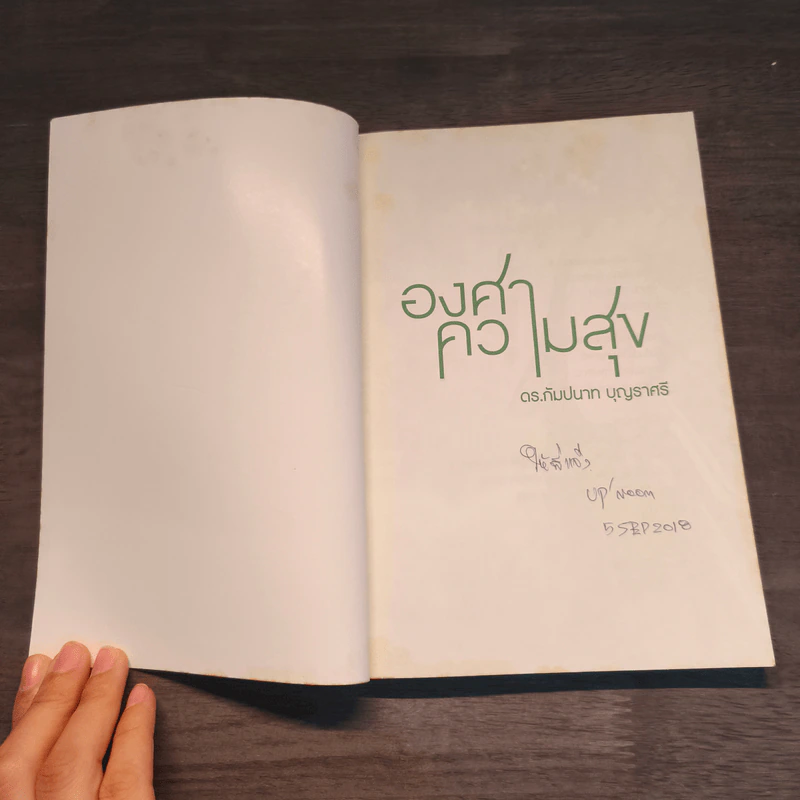 องศา
ความสุข
ดร.กัมปนาท บุญราศรี
UP' Noom
5 SEP 2018